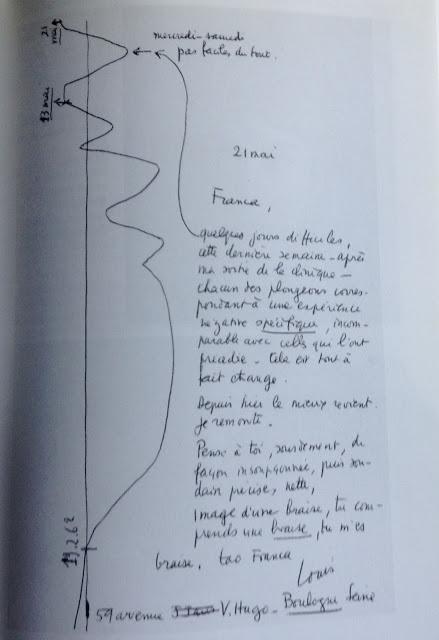 21
mai
mercredi-samedi
pas faciles du tout.
13 mai
21 mai
Franca,
quelques jours difficiles,
cette dernière semaine - après
ma sortie de la clinique -
chacun des plongeons corres-
pondant à une expérience
négative spécifique, incom-
parable avec celles qui l'ont
précédée - Cela est tout à
fait change.
Depuis hier le mieux revient.
Je remonte.
Pense à toi, sourdement, de
façon insoupçonnée, puis sou-
dain précise, nette,
image d'une braise, tu com-
prends une braise, tu m'es
braise, tao Franca
Louis
19.2.62
59 avenue V. Hugo - Boulogne Seine